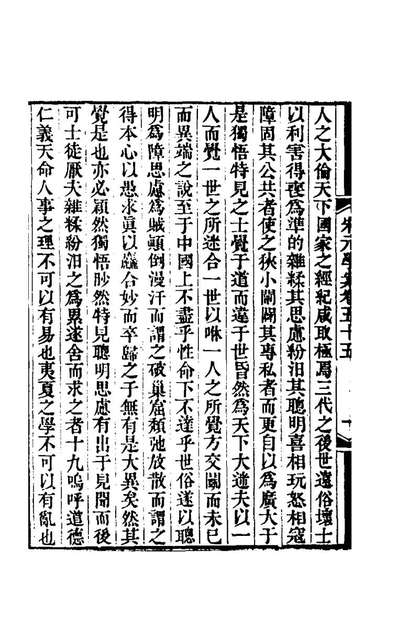 人之大倫天下國家之經紀咸取極焉三代之後世遠俗壞士
以利害得喪爲準的雜糅其思慮粉汨其聰明喜相玩怒相寇
障固其公共者使之狹小闡闢其專私者而更自以爲廣大于
是獨悟特見之士覺于道而違于世皆然爲天下大迷夫以一
人而覺一世之所迷合一世以咻一人之所覺方交鬭而未已
而異端之說至于中國上不盡乎性命下不達乎世俗遂以聰
明爲障思慮爲賊顛倒漫汗而謂之破巢窟頹弛放散而謂之
得本心以愚求眞以麤合妙而卒歸之于無有是大異矣然其
覺是也亦必穎然獨悟眇然特見聰明思慮有出于見聞而後
可士徒厭夫雜糅紛汨之爲累遂舍而求之者十九嗚呼道德
仁義天命人事之理不可以有易也夷夏之學不可以有亂也
宋元學案卷五十五
十